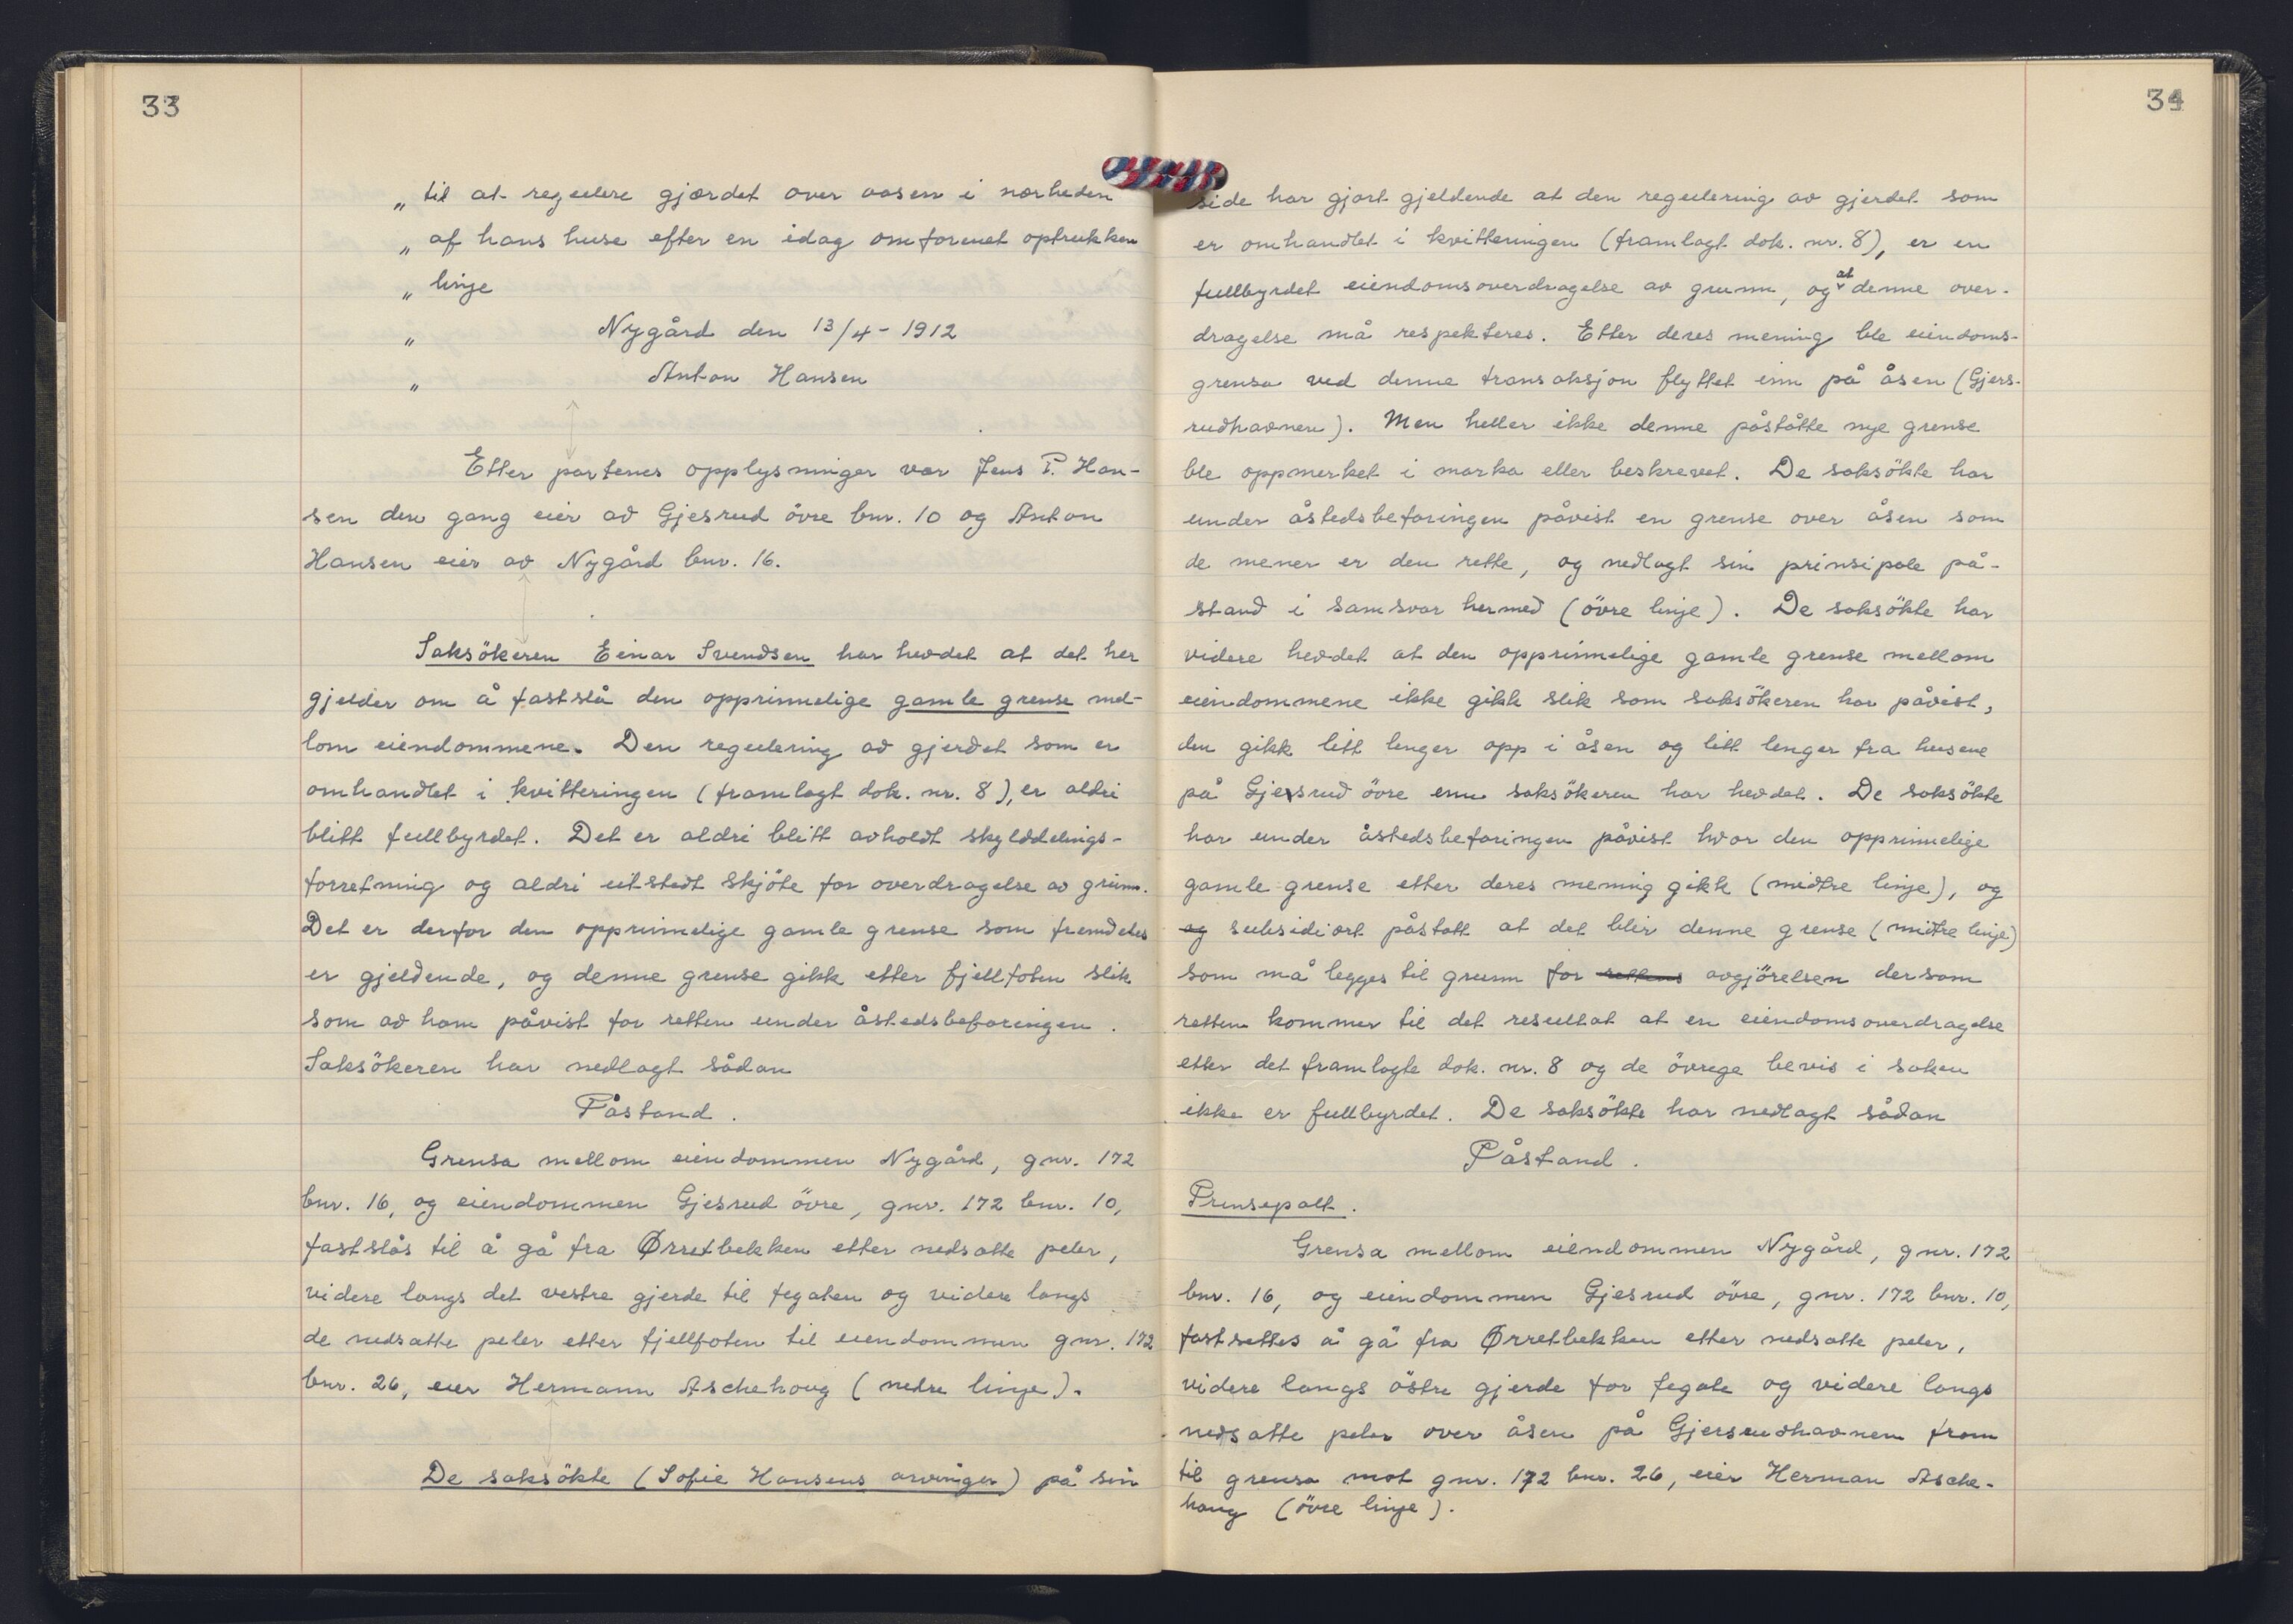 33
„ til at regulere gjærdet over aasen i nærheden
„ af hans huse efter en idag omforenet optrukken
„ linje
„ Nygård den 13/4 - 1912
„ Anton Hansen
Etter partenes opplysninger var Jens P. Han-
sen den gang eier av Gjesrud övre bnr. 10 og Anton
Hansen eier av Nygård bnr. 16.
Saksökeren Einar Svendsen har hevdet at det her
gjelder om å fastslå den opprinnelige gamle grense mel-
lom eiendommene. Den regulering av gjerdet som er
omhandlet i kvitteringen (framlagt dok. nr. 8), er aldri
blitt fullbyrdet. Det er aldri blitt avholdt skylddelings-
forretning og aldri utstedt skjöte for overdragelse av grunn.
Det er derfor den opprinnelige gamle grense som fremdeles
er gjeldende, og denne grense gikk etter fjellfoten slik
som av ham påvist for retten under åstedsbefaringen.
Saksökeren har nedlagt sådan
Påstand.
Grensa mellom eiendommen Nygård, gnr. 172
bnr. 16, og eiendommen Gjesrud övre, gnr. 172 bnr. 10,
fastslås til å gå fra Ørretbekken etter nedsatte peler,
videre langs det vestre gjerde til fegaten og videre langs
de nedsatte peler etter fjellfoten til eiendommen gnr. 172
bnr. 26, eier Hermann Aschehoug (nedre linje).
De saksökte (Sofie Hansens arvinger) på sin
34
side har gjort gjeldende at den regulering av gjerdet som
er omhandlet i kvitteringen (framlagt dok. nr. 8), er en
fullbyrdet eiendomsoverdragelse av grunn, og at denne over-
dragelse må respekteres. Etter deres mening ble eiendoms-
grensa ved denne transaksjon flyttet inn på åsen (Gjers-
rudhavnen). Men heller ikke denne påståtte nye grense
ble oppmerket i marka eller beskrevet. De saksökte har
under åstedsbefaringen påvist en grense over åsen som
de mener er den rette, og nedlagt sin prinsipale på-
stand i samsvar hermed (övre linje). De saksökte har
videre hevdet at den opprinnelige gamle grense mellom
eiendommene ikke gikk slik som saksökeren har påvist,
den gikk litt lenger opp i åsen og litt lenger fra husene
på Gjersrud övre enn saksökeren har hevdet. De saksökte
har under åstedsbefaringen påvist hvor den opprinnelige
gamle grense etter deres mening gikk (midtre linje), og
og subsidiært påstått at det blir denne grense (midtre linje)
som må legges til grunn for rettens avgjörelsen dersom
retten kommer til det resultat at en eiendomsoverdragelse
etter det framlagte dok. nr. 8 og de övrege bevis i saken
ikke er fullbyrdet. De saksökte har nedlagt sådan
Påstand.
Prinsepalt.
Grensa mellom eiendommen Nygård, gnr. 172
bnr. 16, og eiendommen Gjesrud övre, gnr. 172 bnr. 10,
fastsettes å gå fra Ørretbekken etter nedsatte peler,
videre langs östre gjerde for fegate og videre langs
nedsatte peler over åsen på Gjersrudhavnen fram
til grensa mot gnr. 172 bnr. 26, eier Herman Asche-
houg (övre linje).